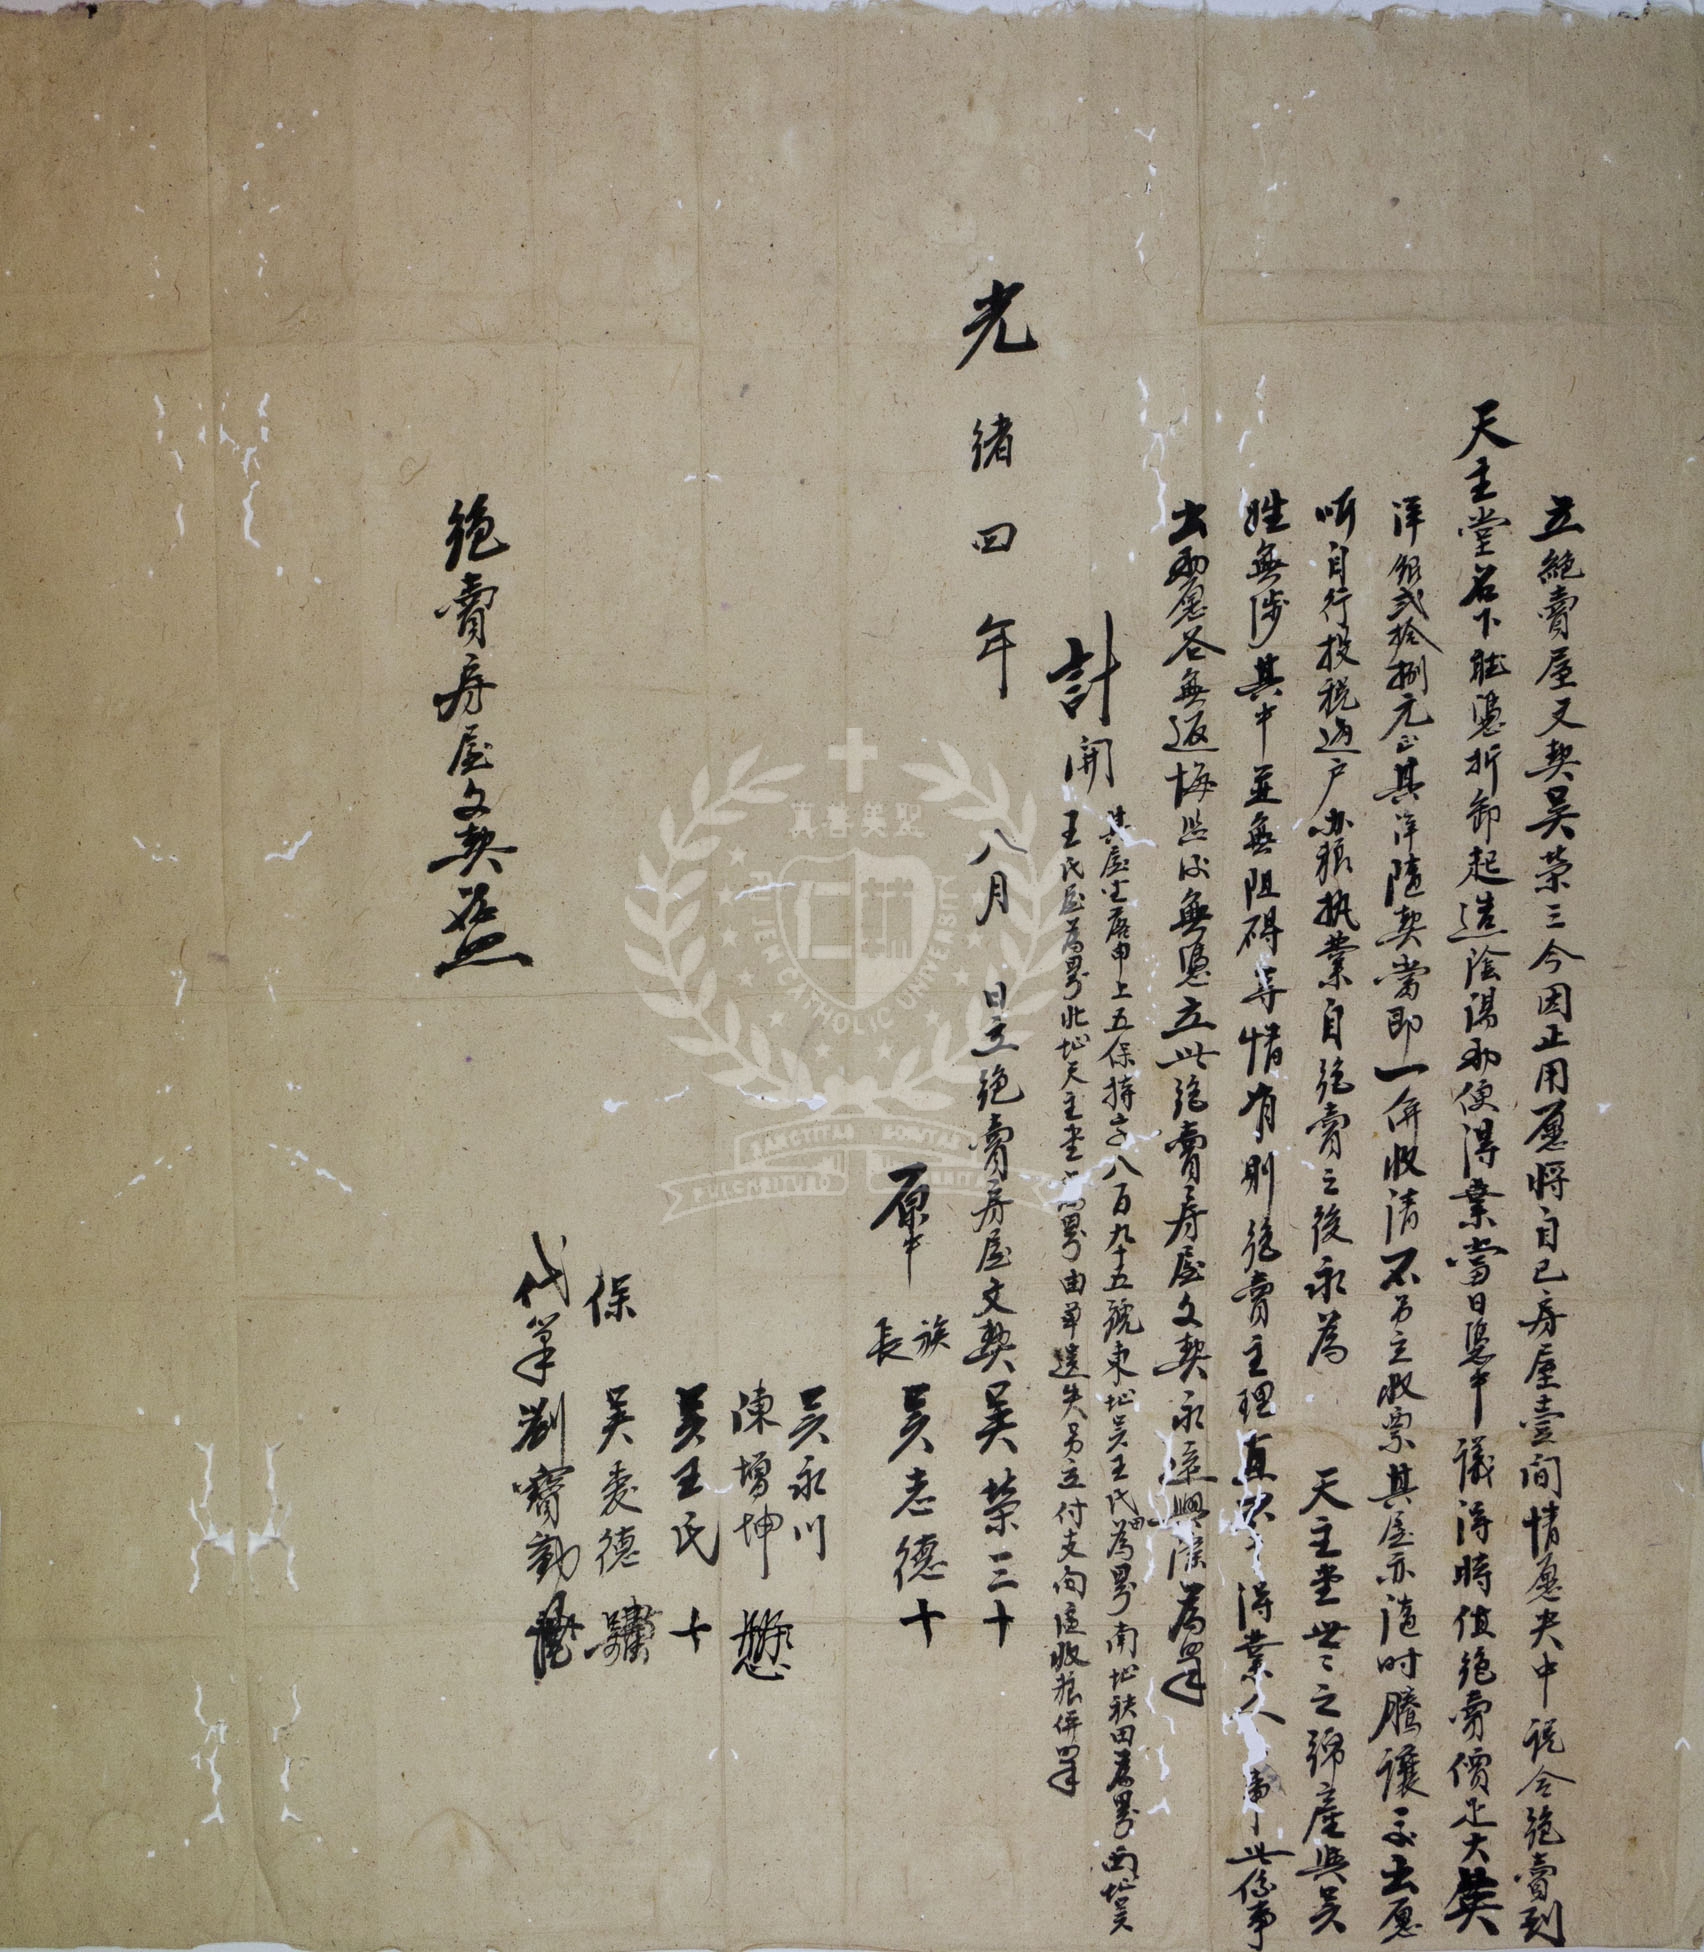 立絕賣屋文契吳榮三今因正用愿將自己房屋壹間情愿央中説合絕賣到
天主堂名下聽憑折卸起造陰陽兩便得業當日憑中議得時值絕賣價足大英
洋銀弐拾捌元正其洋隨契當即一併收清不另立收票其屋亦隨时騰讓交出愿
听自行投税過户办粮执業自絕賣之後永為天主堂世〻之錦產與吳
姓無涉其中並無阻碍等情有則絕賣主理直與得業人事此係事
出兩愿各無返悔恐後無憑立此絕賣房屋文契永遠興隆為畢
計開其屋坐落中上五保持字八百九十五號東址吳王氏田為畍南址秧田為畍西址吴
王氏屋為畍北址天主堂為畍由單遺失另立付支向後收粮併畢
光緒四年八月日立絕賣房屋文契吳榮三十
原中族長吴志德十
吴永川
陳增坤
吴王氏十
保吴委德
代筆劉寳勤
絕賣房屋文契
真善美聖
FU JEN CATHOLIC UNIVERSITY
SANCTITAS BONITAS
PULCHRITUDO VERITAS